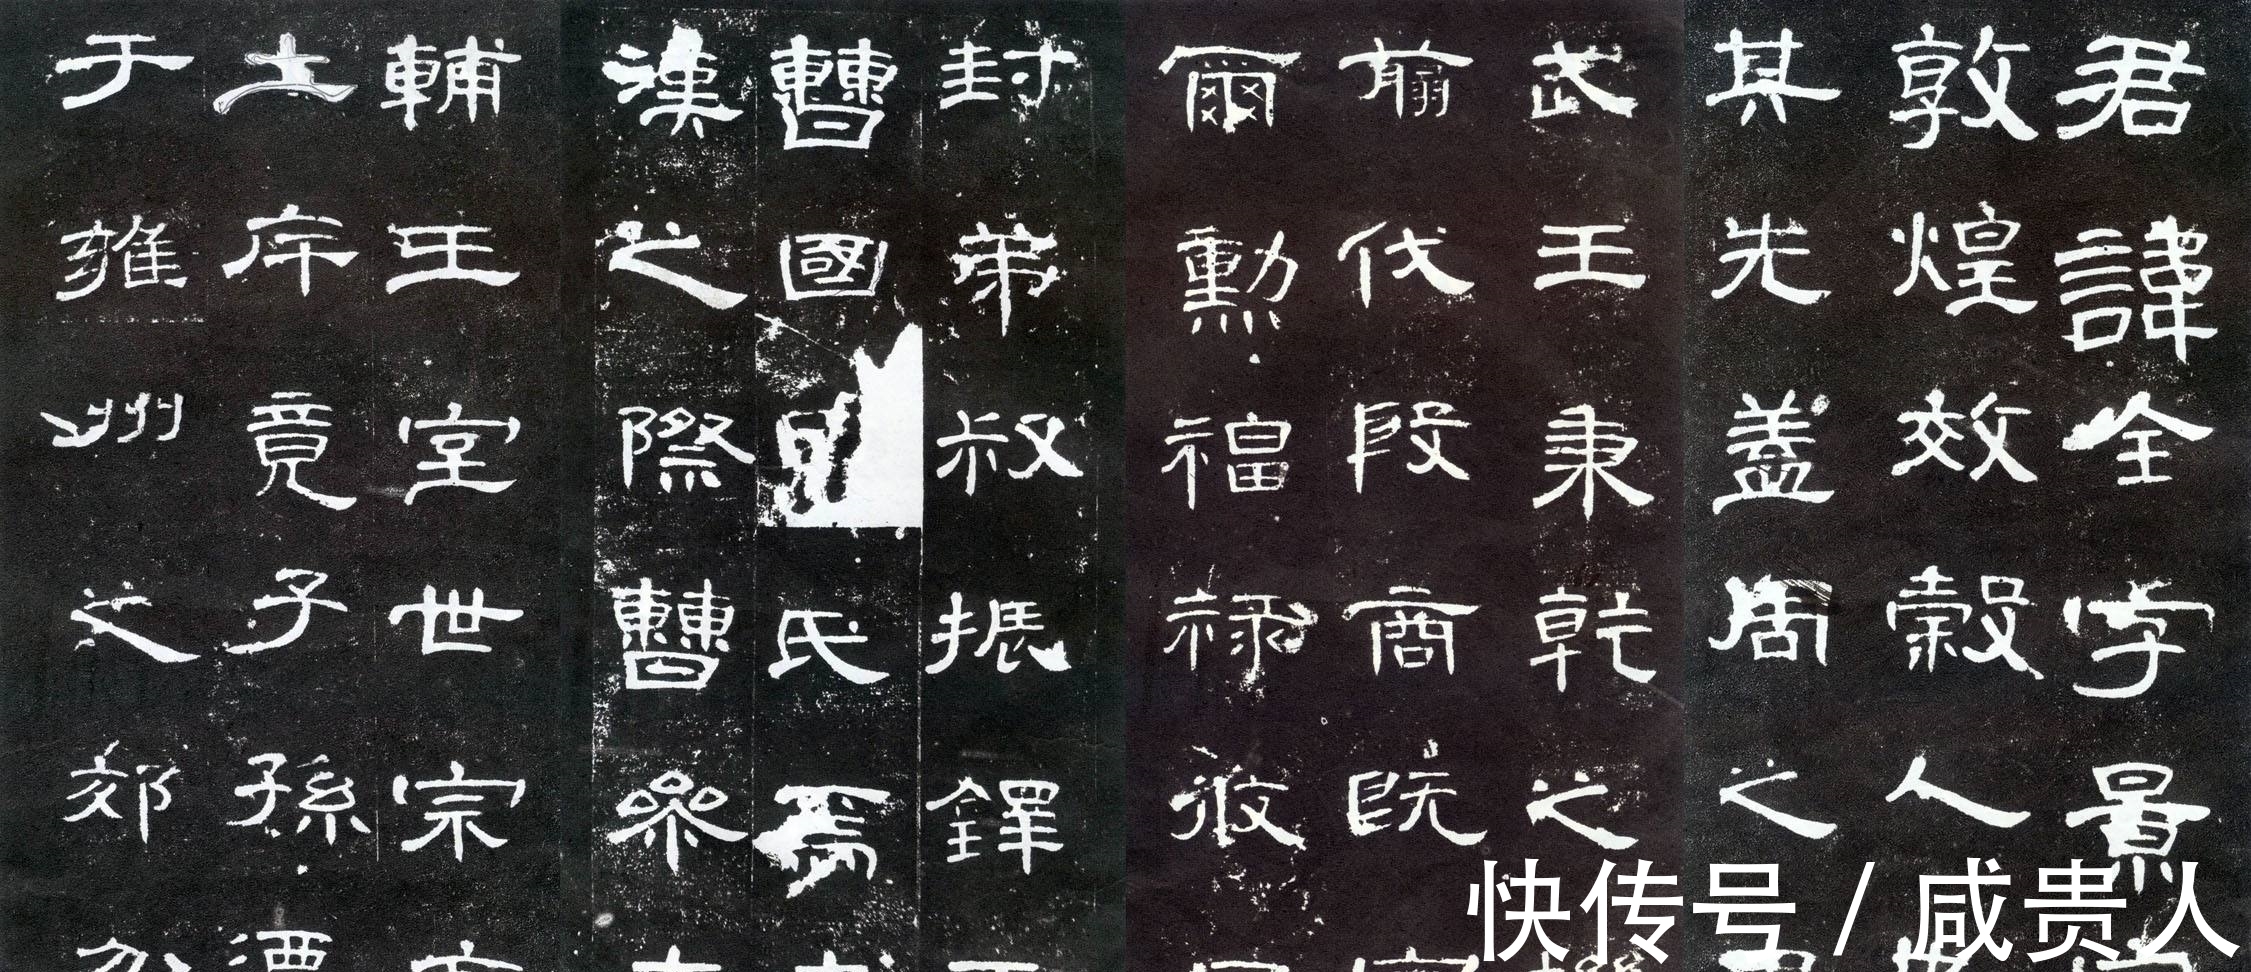 君諱全字景
敦煌效穀人
其先蓋周之
武王秉乾之
翦伐殷商既
爾勳福祿攸
封弟叔振鐸
曹國氏焉
漢之際曹參
輔王室世宗
土斥竟子孫
于雍州之郊
快传号 / 咸贵人